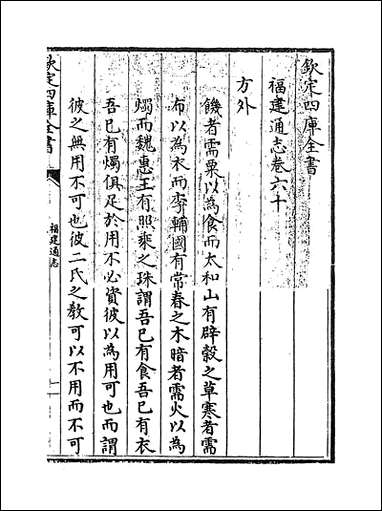 欽定四庫全書
福建通志卷六十
方外
饑者需粟以為食而太和山有辟穀之草寒者需
布以為衣而李輔國有常春之木暗者需火以為
燭而魏惠王有照乘之珠謂吾已有食吾已有衣
吾已有燭俱足於用不必資彼以為用可也而謂
彼之無用不可也彼二氏之教可以不用而不可
欽定四庫全書
福建通志
一